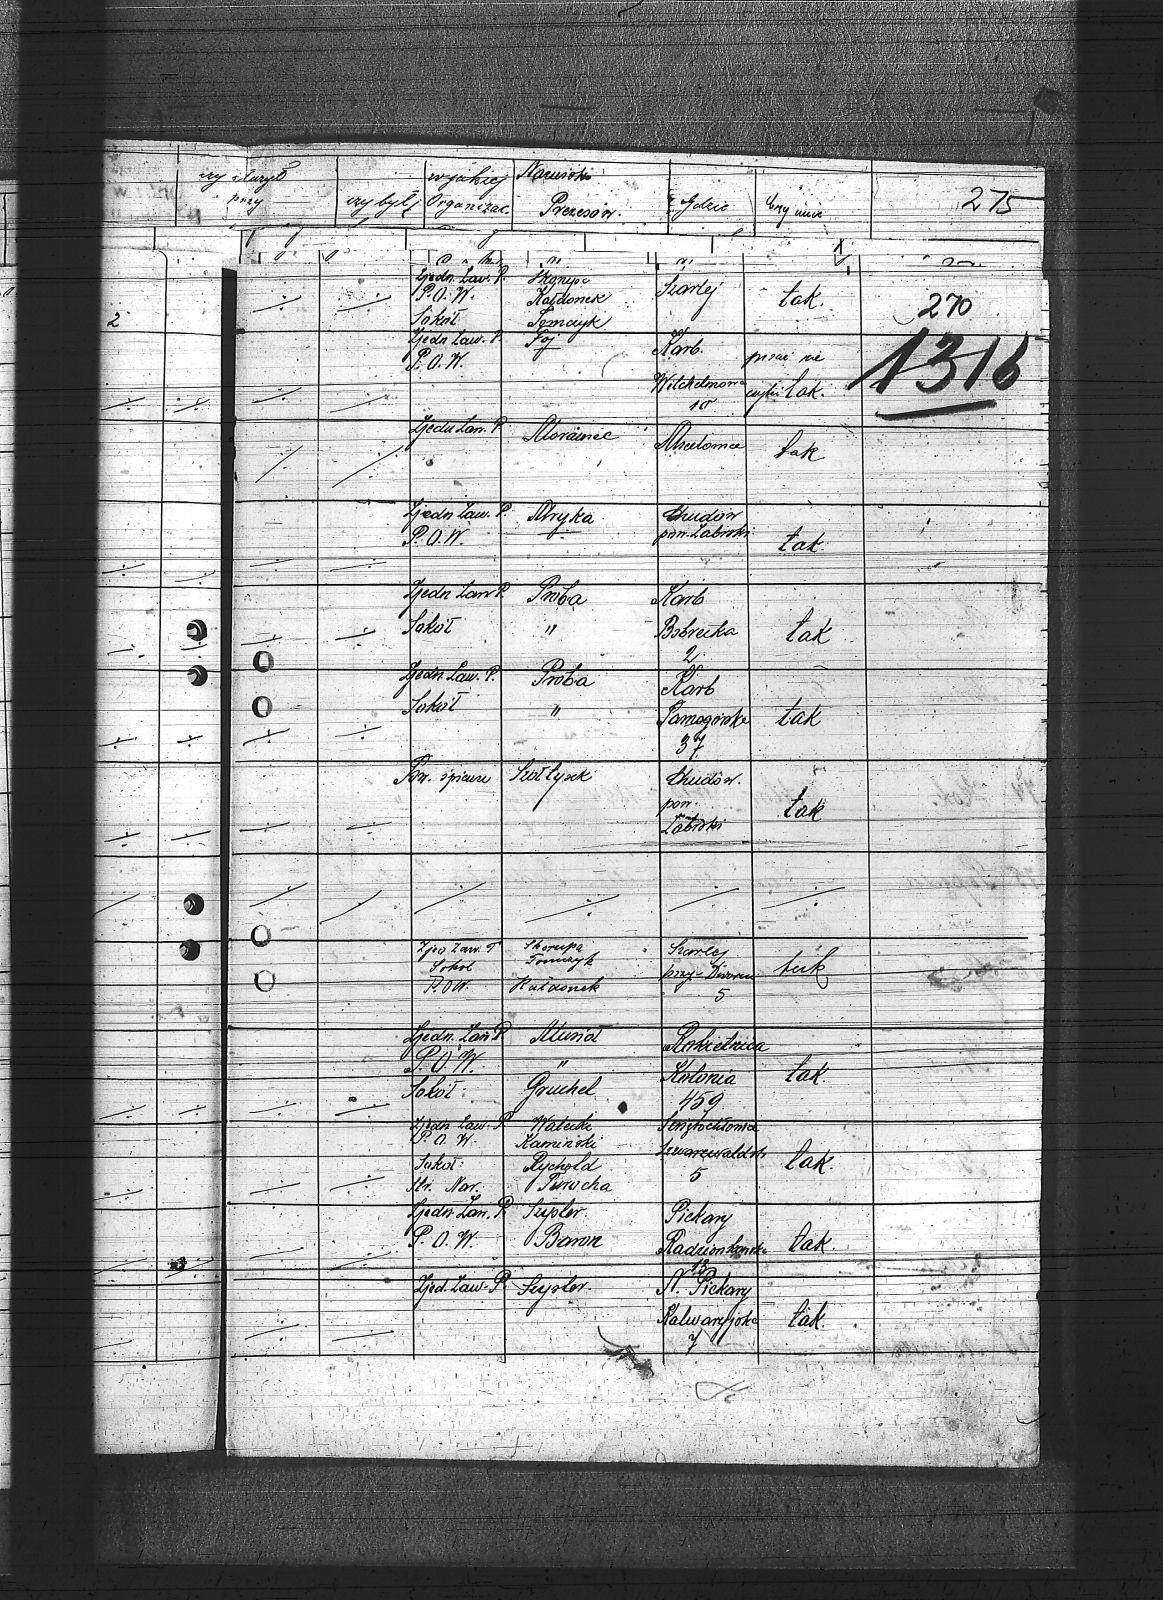 czy służył przy
czy był
w jakiej Organizac.
Nazwisko Prezesów.
Gdzie
Czy umie
275
2
Zjedn. Zaw. P.
P.O.W. Kałdonek Szarlej tak. 270
Sokół Tomczyk
Zjedn. Zaw. P. Foj Karb. pisać nie 1316
P.O.W.
10 czyta tak.
Zjedn. Zaw. P. tak
Zjedn. Zaw. P. Mryka Chudów
P.O.W. pow. Zabrski tak.
Zjedn. Zaw. P. Proba Karb
Sokół " Bobrecka tak
2.
Zjedn. Zaw. P. Proba Karb
Sokół " Tarnogórska tak
37
Tow. śpiewu Szołtysek Chudów.
pow. tak
Zabrski
Zjed. Zaw. P. Skorupa Szarlej
Sokół Tomczyk przy Dworcu tak
P.O.W. Kałdonek 5
Zjedn. Zaw. P. Rokietnica
P.O.W. " Kolonia tak.
Sokół: Gruchel 459
Zjedn. Zaw. P. Świętochłowice
P.O.W. Kamiński
Sokół: Rychold 5 tak.
Str. Nar.
Zjedn. Zaw. P. Szyler. Piekary
P.O.W. Baron Radzionkowska tak.
13
Zjed. Zaw. P. Szyler. N. Piekary
Kalwaryjska tak.
7